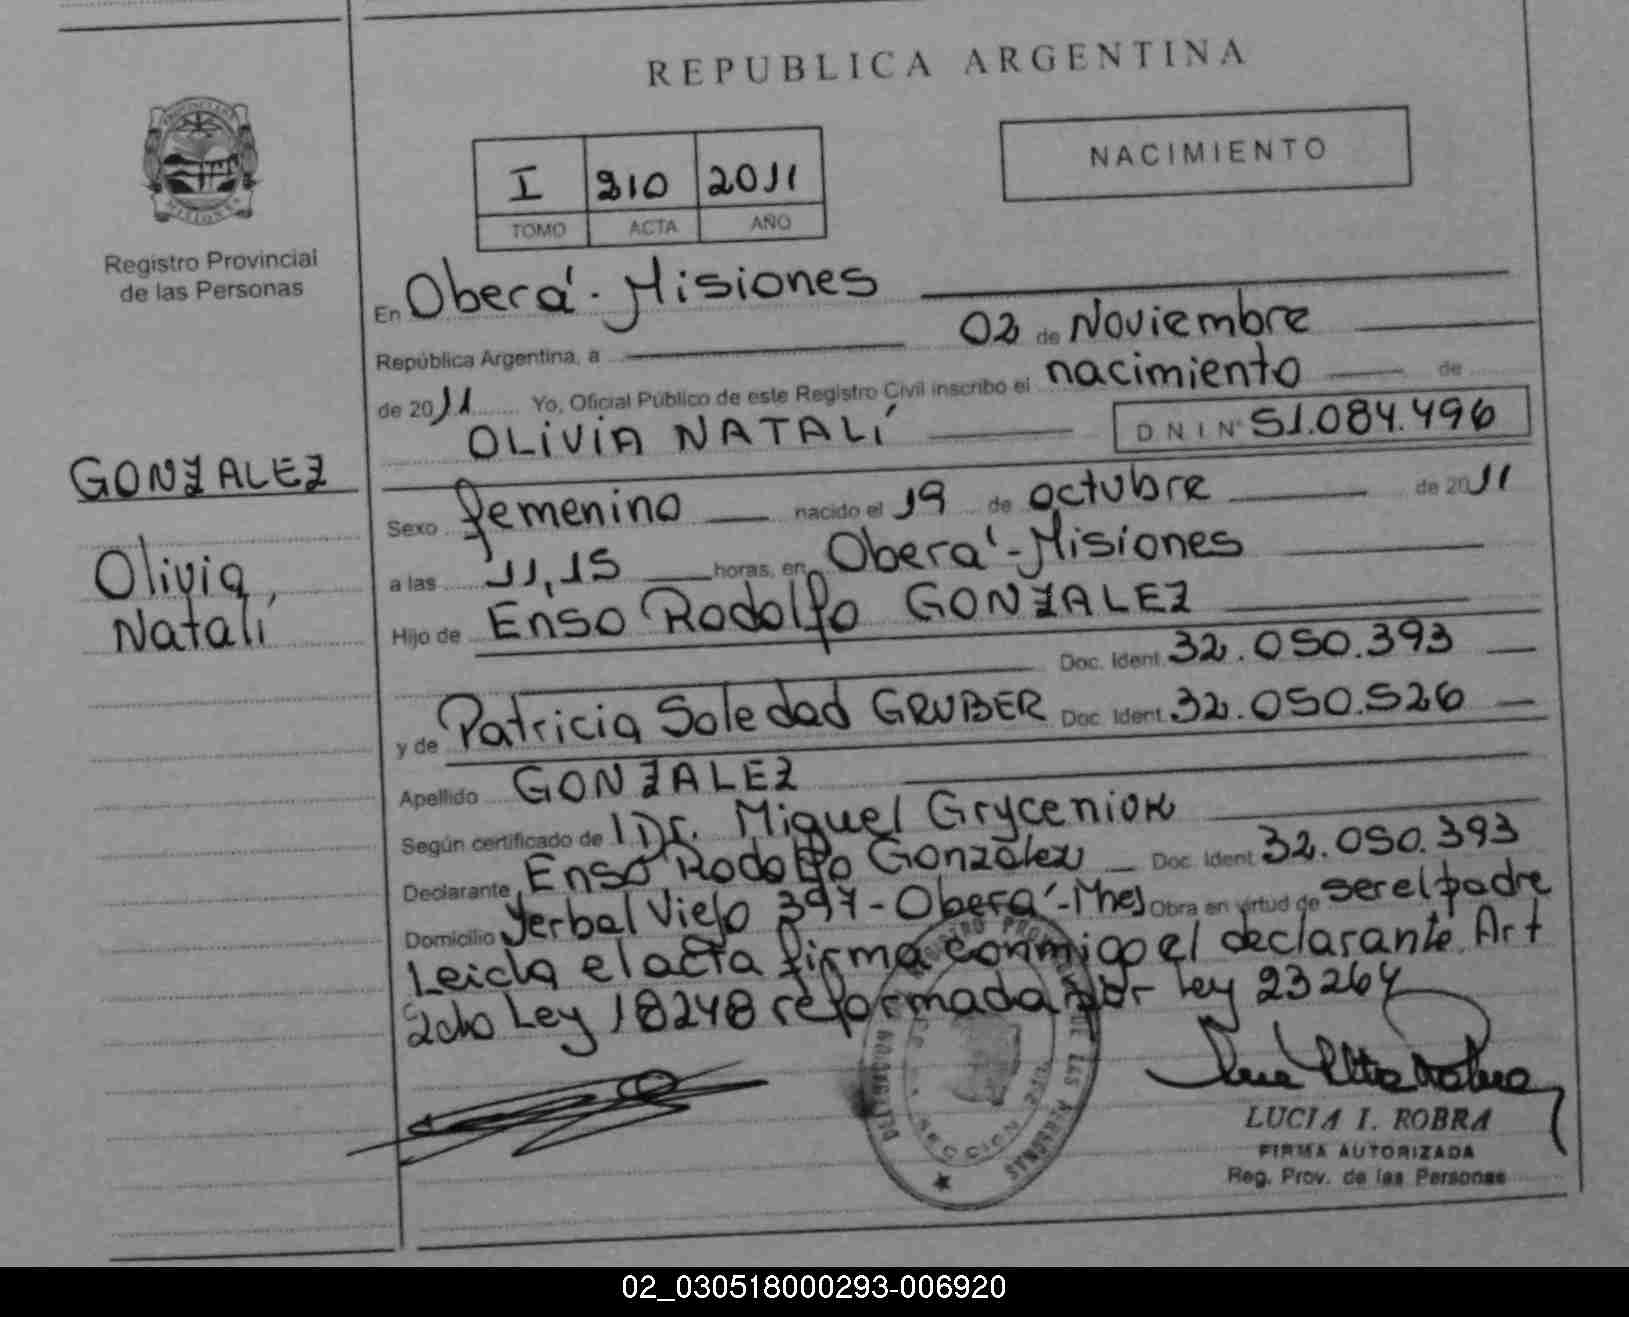 REPUBLICA ARGENTINA
NACIMIENTO
I 910 2011
TOMO ACTA AÑO
PROVINCIA DE
MISIONES
Registro Provincial
de las Personas
En Oberá - Misiones
República Argentina, a 02 de Noviembre
de 2011 Yo, Oficial Público de este Registro Civil inscribo el nacimiento de
OLIVIA NATALÍ DNI Nº 51.084.496
GONZALEZ
Olivia,
Natalí
Sexo femenino nacido el 19 de octubre de 2011
a las 11,15 horas, en Oberá - Misiones
Hijo de Enso Rodolfo GONZALEZ
Doc. Ident. 32.050.393
y de Patricia Soledad GRUBER Doc. Ident. 32.050.526
Apellido GONZALEZ
Según certificado de Dr. Miguel Gryceniok
Declarante Enso Rodolfo Gonzalez Doc. Ident. 32.050.393
Domicilio Yerbal Viejo 397 - Oberá - Mnes Obra en virtud de ser el padre
Leida el acta firma conmigo el declarante Art
2do Ley 18248 reformada por Ley 23264
LUCIA I. ROBRA
FIRMA AUTORIZADA
Reg. Prov. de las Personas
02_030518000293-006920